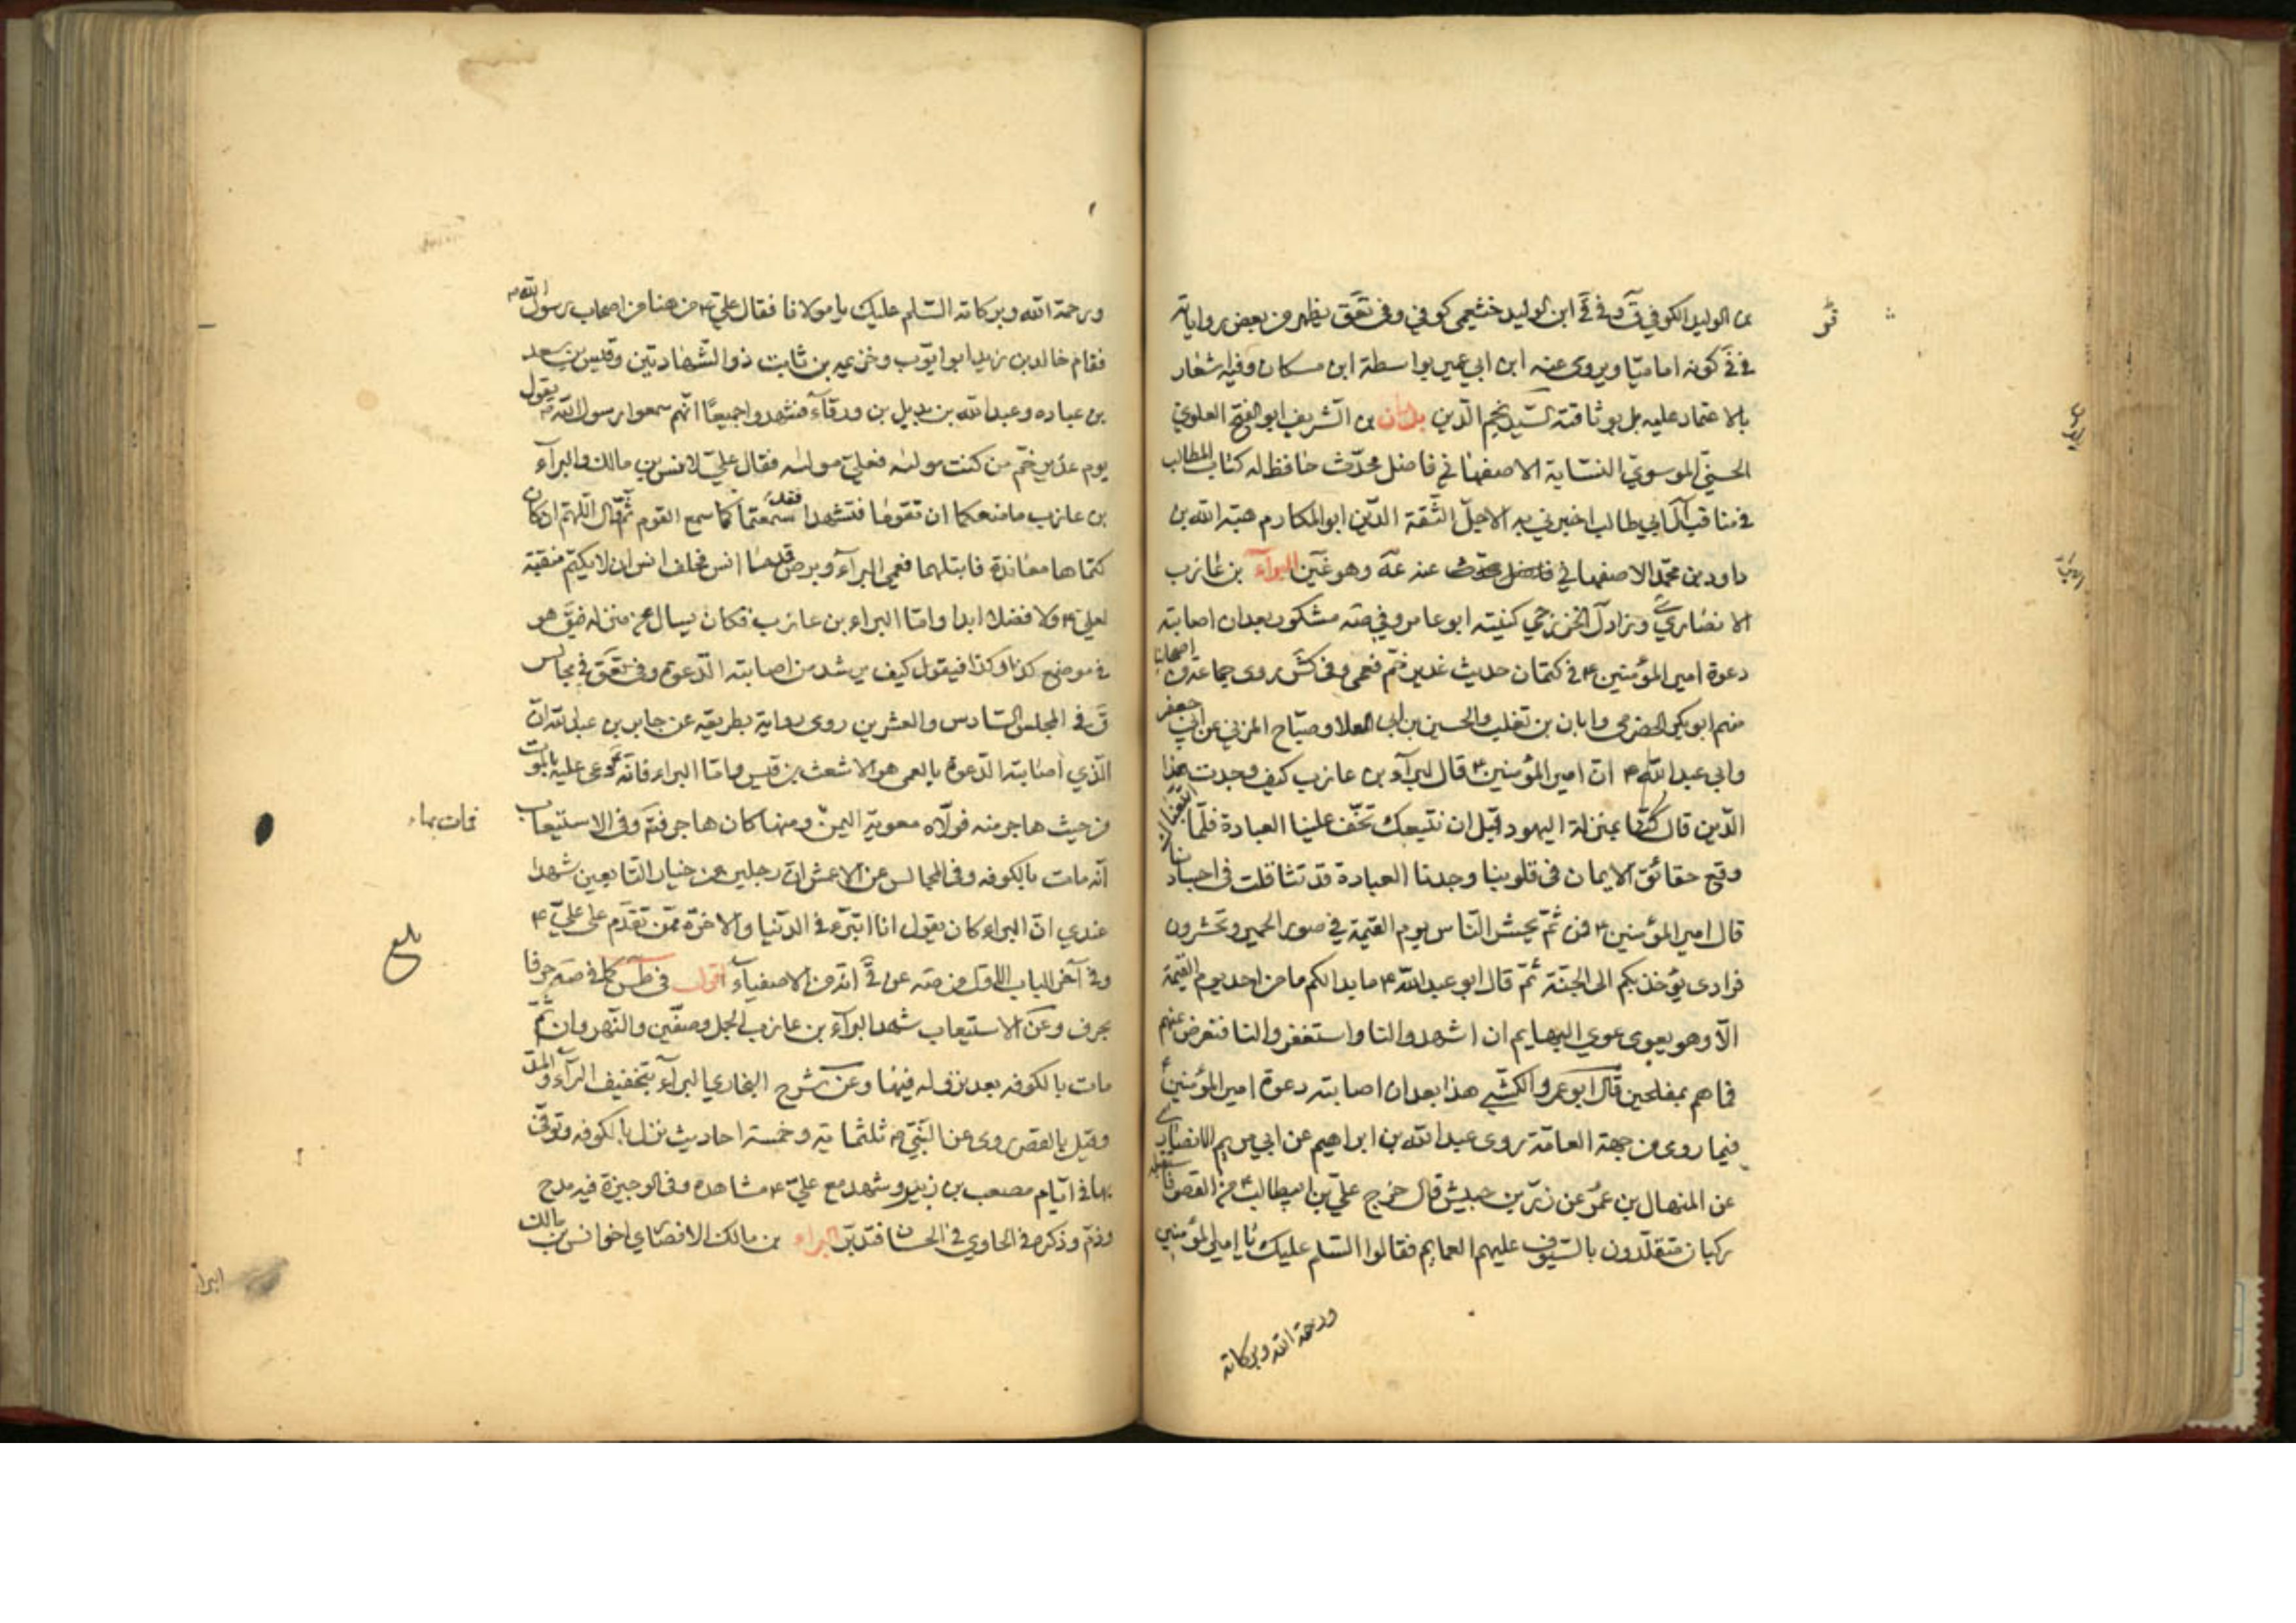 بن الوليد الكوفي ق وفي في ابن الوليد خثيمي كوفي وفي تعق يظهر من بعض رواياته
في في كونه اماميا ويروى عنه ابن ابي عمير بواسطة ابن مسكان وفيه شعار
بالاعتماد عليه بل بوثاقته السيد نجم الدين بدران بن الشريف ابو الفتح العلوي
الحسيني الموسوي النسابة الاصفهاني فاضل محدث حافظ له كتاب المطالب
في مناقب آل ابي طالب اخبرني به الاجل الثقة الدين ابو المكارم هبة الله بن
داود بن محمد الاصفهاني فاضل محدث عنه عه وهو غين البراء بن عازب
الانصاري وزاد ل الخزرجي كنيته ابو عامر وفي صه مشكور بعد ان اصابته
دعوة امير المؤمنين ع في كتمان حديث غدير خم فعمى وفي كش روى جماعة من اصحابنا
منهم ابو بكر الحضرمي وابان بن تغلب والحسين بن ابي العلا وصباح المزني عن ابي جعفر
وابي عبد الله ع ان امير المؤمنين ع قال للبراء بن عازب كيف وجدت هذا
الدين قال كنا بمنزلة اليهود قبل ان نتبعك تخف علينا العبادة فلما اتبعناك
وقع حقائق الايمان في قلوبنا وجدنا العبادة قد تثاقلت في اجسادنا
قال امير المؤمنين ع فمن ثم يحشر الناس يوم القيمة في صور الحمير وتحشرون
فرادى يؤخذ بكم الى الجنة ثم قال ابو عبد الله ع ما بدا لكم ما من احد يوم القيمة
الا وهو يعوى عوي البهايم ان اشهدوا لنا واستغفروا لنا فنعرض عنهم
فما هم بمفلحين قال ابو عمرو الكشي هذا بعد ان اصابته دعوة امير المؤمنين ع
فيما روى من جهة العامة روى عبد الله بن ابراهيم عن ابي مريم الانصاري
عن المنهال بن عمرو عن زر بن حبيش قال خرج علي بن ابيطالب ع من القصر فاستقبله
ركبان متقلدون بالسيوف عليهم العمايم فقالوا السلم عليك يا امير المؤمنين
ورحمة الله وبركاته
ورحمة الله وبركاته السلم عليك يا مولانا فقال علي ع من هنا من اصحاب رسول الله ص
فقام خالد بن زيد ابو ايوب وخزيمه بن ثابت ذو الشهادتين وقيس بن سعد
بن عباده وعبد الله بن بديل بن ورقاء فشهدوا جميعا انهم سمعوا رسول الله ص يقول
يوم غدير خم من كنت مولاه فعلي مولاه فقال علي لانس بن مالك والبراء
بن عازب ما منعكما ان تقوما فتشهدا فقد سمعتما كما سمع القوم ثم قال اللهم ان كان
كتماها معاندة فابتلهما فعمى البراء وبرص قدما انس فحلف انس ان لا يكتم منقبة
لعلي ع ولا فضلا ابدا واما البراء بن عازب فكان يسال عن منزله فيق هو
في موضع كذا وكذا فيقول كيف يرشد من اصابته الدعوة وفي تعق في مجالس
ق في المجلس السادس والعشرين روى رواية بطريقه عن جابر بن عبد الله ان
الذي اصابته الدعوة بالعمى هو الاشعث بن قيس واما البراء فانه دعى عليه بالموت
من حيث هاجر منه فولاه معوية اليمن ومنها كان هاجر فتم وفي الاستيعاب
فمات بها
انه مات بالكوفه وفي المجالس عن الاعمش ان رجلين من خيار التابعين شهدا
عندي ان البراء كان يقول انا اتبرء في الدنيا والاخرة ممن تقدم على علي ع
بلغ
وفي آخر الباب الاول من صه عن قي انه من الاصفياء اقول في طس كما في صه حرفا
بحرف وعن الاستيعاب شهد البراء بن عازب الجمل وصفين والنهروان ثم
مات بالكوفه بعد نزوله فيها وعن شرح البخاري البراء بتخفيف الراء والمد
وقيل بالقصر روى عن النبي ص ثلثمائة وخمسة احاديث نزل بالكوفه وتوفى
بها في ايام مصعب بن زبير وشهد مع علي ع مشاهده وفي الوجيزة فيه مدح
وذم وذكره في الحاوي في الحسان فتدبر البراء بن مالك الانصاري اخو انس بن مالك